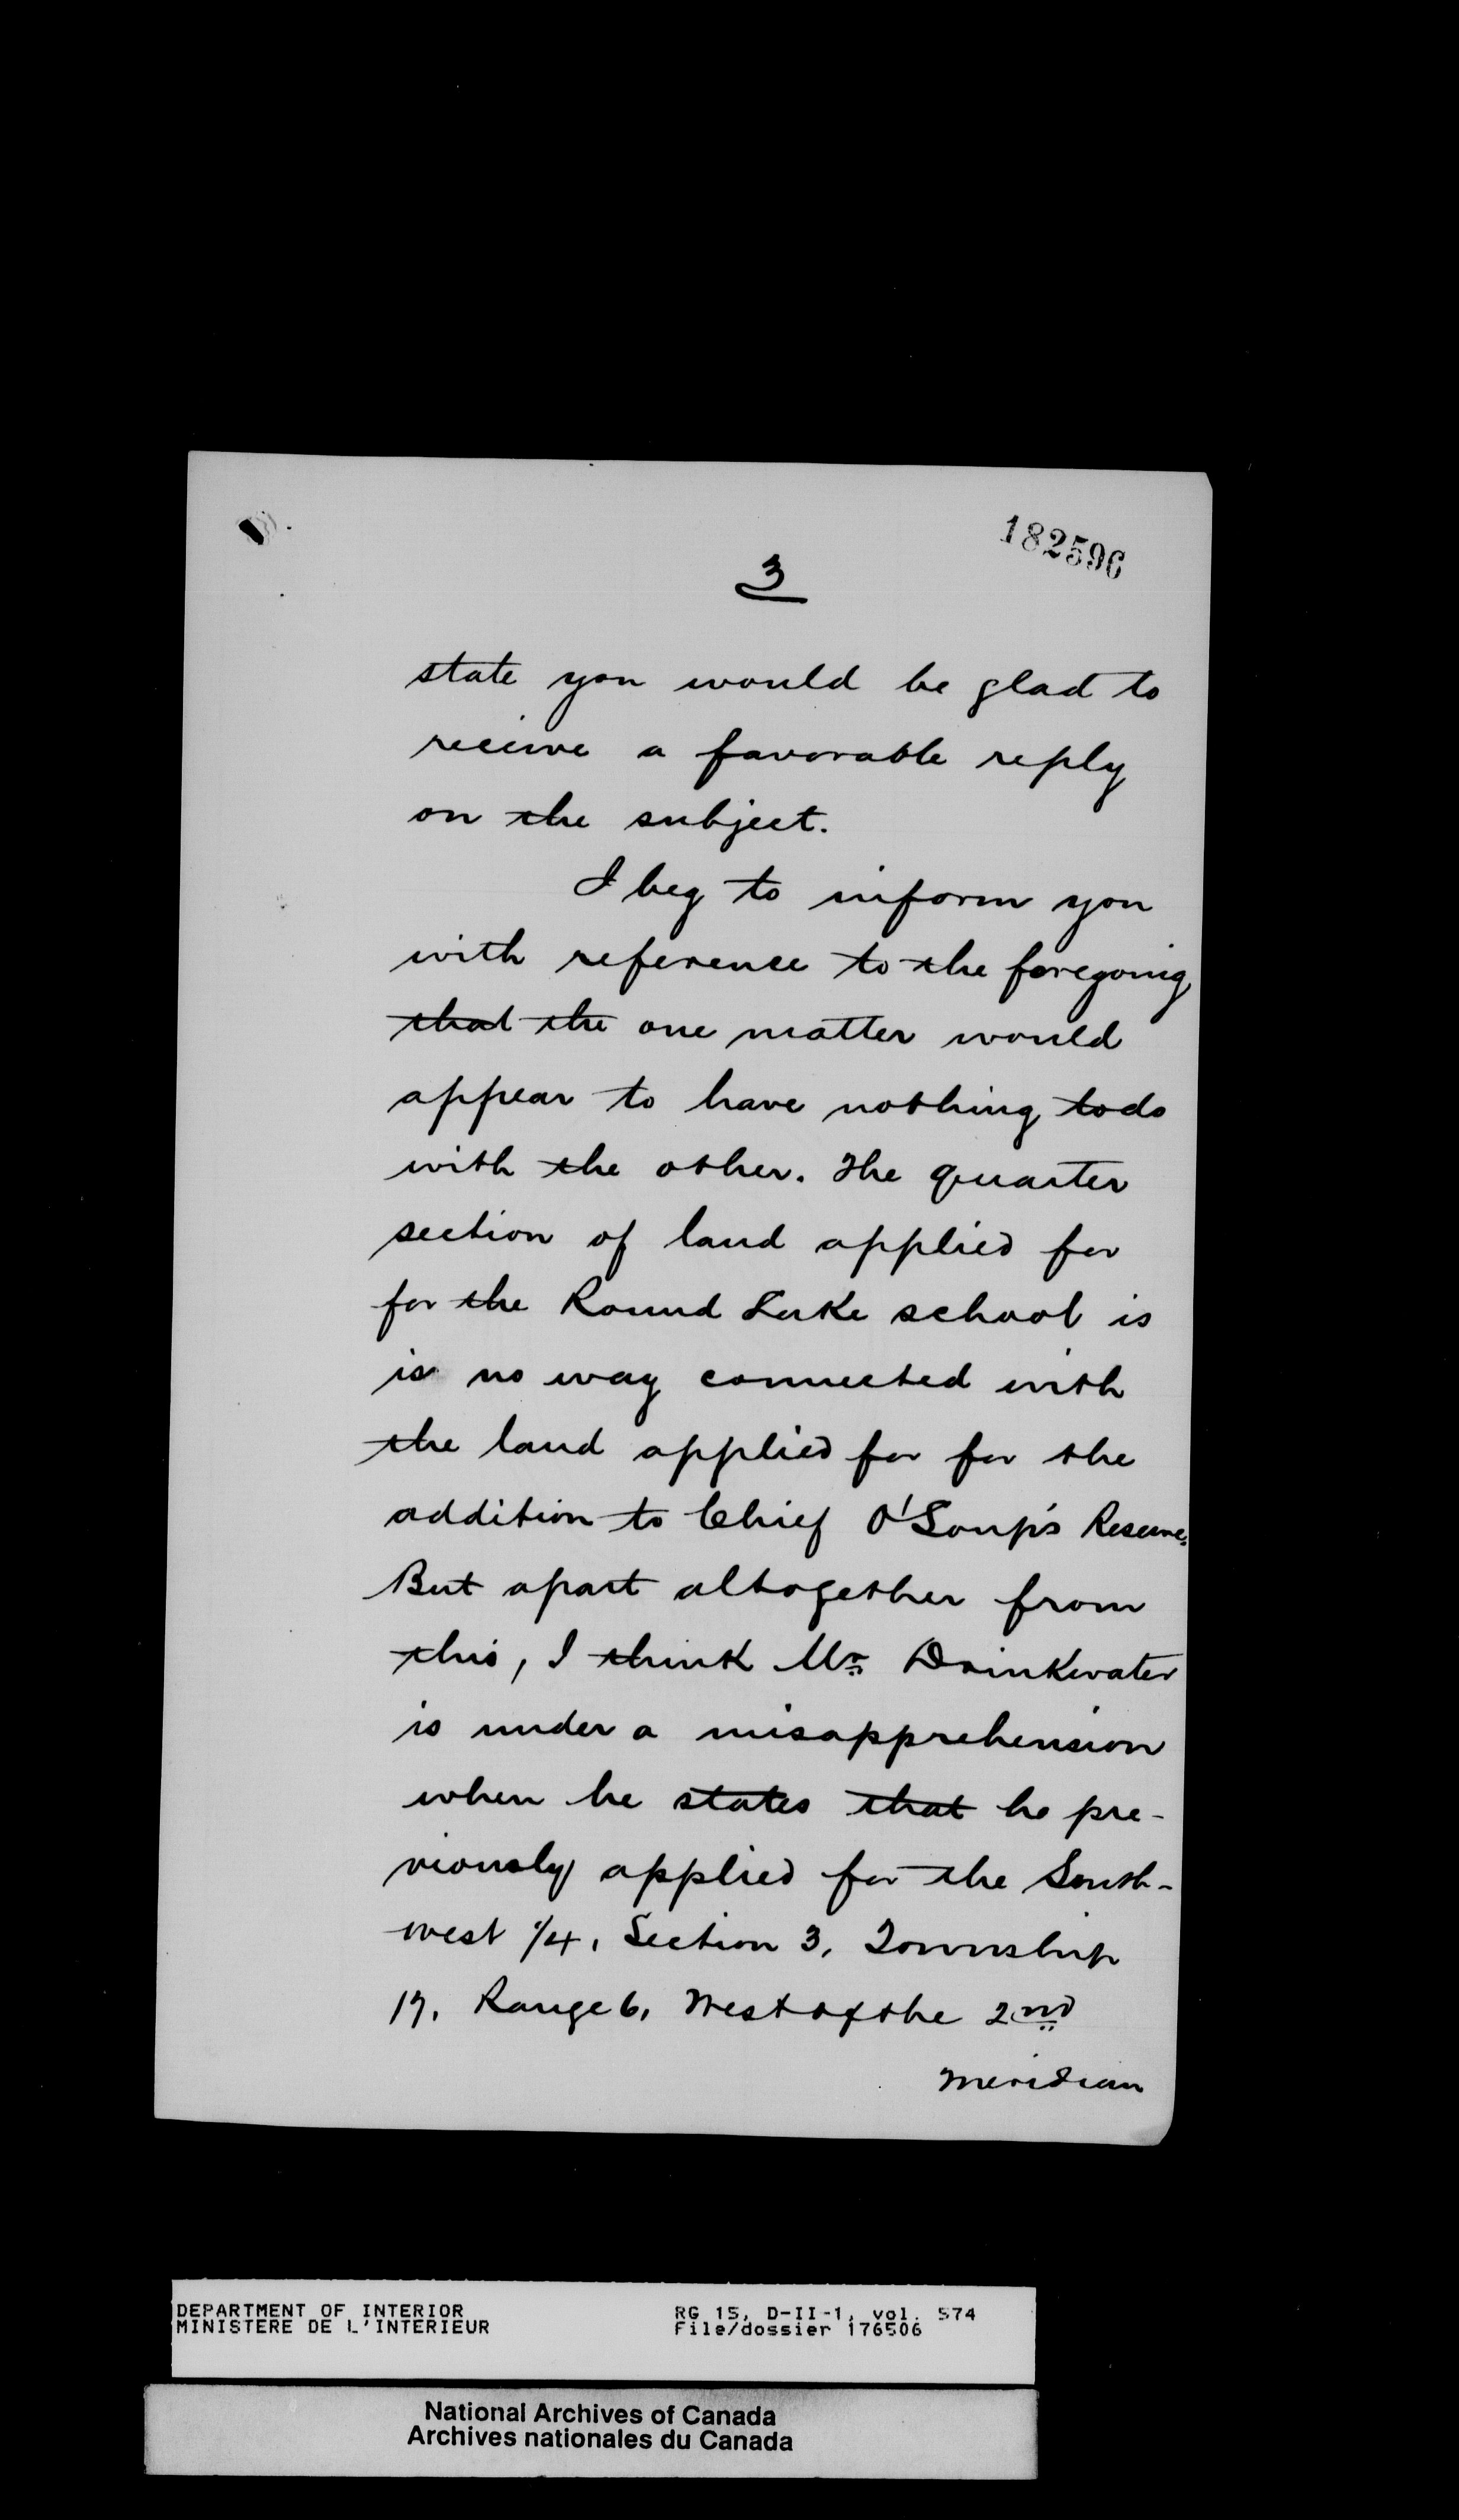 182596
3
state you would be glad to
receive a favorable reply
on the subject.
I beg to inform you
with reference to the foregoing
that the one matter would
appear to have nothing to do
with the other. The quarter
section of land applied for
for the Round Lake school is
in no way connected with
the land applied for for the
addition to Chief O'Soup's Reserve.
But apart altogether from
this, I think Mr. Drinkwater
is under a misapprehension
when he states that he pre-
viously applied for the South-
west 1/4, Section 3, Township
17, Range 6, West of the 2nd
Meridian
DEPARTMENT OF INTERIOR
MINISTERE DE L'INTERIEUR
RG 15, D-II-1, vol. 574
File/dossier 176506
National Archives of Canada
Archives nationales du Canada